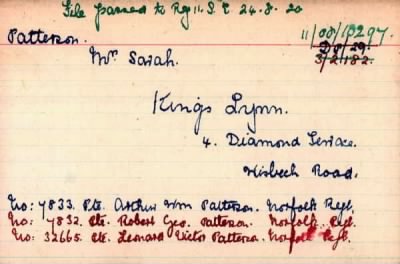 File passed to Rg 11. S.E 24.8.20
11/OO/10297.
Patterson.
D8/29.
Mrs Sarah.
3/2/182.
Kings Lynn.
4. Diamond Terrace.
Wisbech Road.
No: 7833. Pte. Arthur Wm Patterson. Norfolk Regt.
No: 7832. Pte. Robert Geo. Patterson. Norfolk Regt.
No: 32665. Pte. Leonard Victor Patterson. Norfolk Regt.